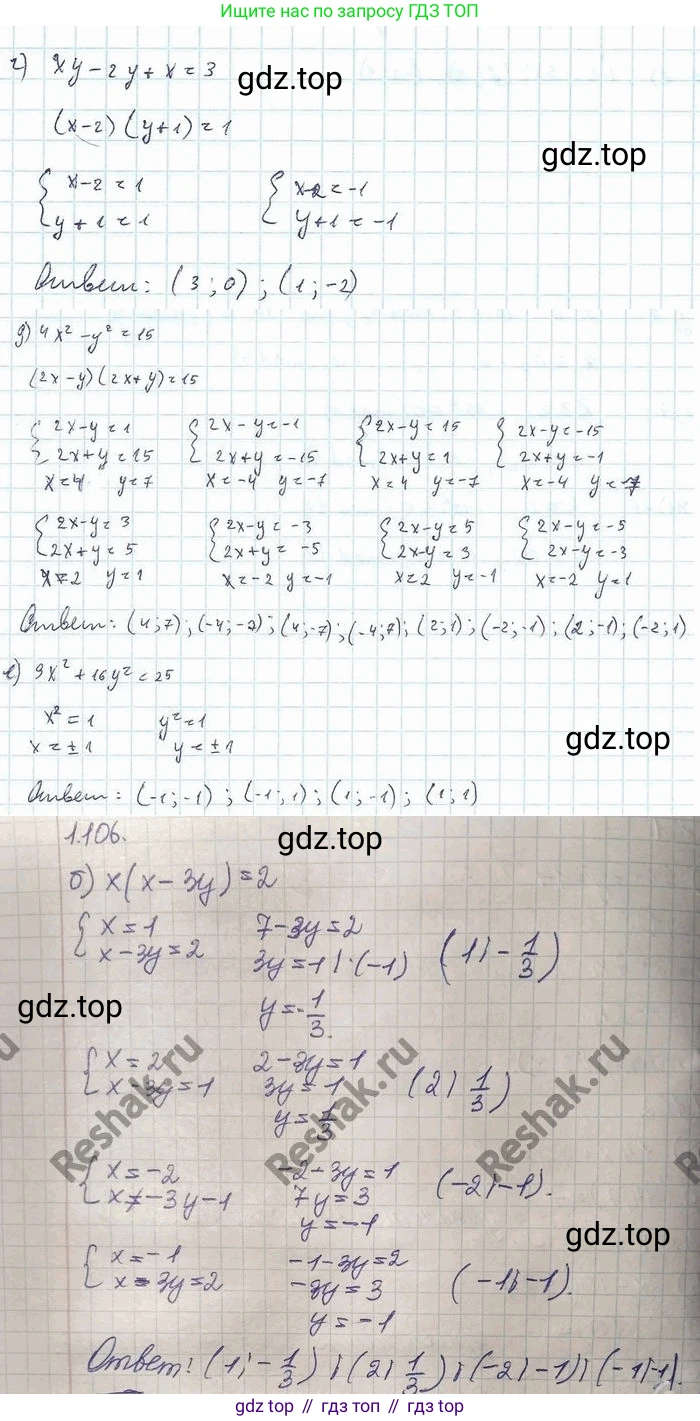 Ищите решение по запросу ГДЗ ТОП
г) xy - 2y + x = 3
gdz.top
(x-2)(y+1) = 1
gdz.top
{ x-2 = 1 { x-2 = -1
y+1 = 1 y+1 = -1
Ответ: (3; 0); (1; -2)
д) 4x² - y² = 15
(2x-y)(2x+y) = 15
{ 2x-y=1 { 2x-y=-1 { 2x-y=15 { 2x-y=-15
2x+y=15 2x+y=-15 2x+y=1 2x+y=-1
x=4 y=7 x=-4 y=-7 x=4 y=-7 x=-4 y=7
{ 2x-y=3 { 2x-y=-3 { 2x-y=5 { 2x-y=-5
2x+y=5 2x+y=-5 2x-y=3 2x-y=-3
x=2 y=1 x=-2 y=-1 x=2 y=-1 x=-2 y=1
Ответ: (4; 7); (-4; -7); (4; -7); (-4; 7); (2; 1); (-2; -1); (2; -1); (-2; 1)
е) 9x² + 16y² = 25
x² = 1 y² = 1
x = ±1 y = ±1
gdz.top
Ответ: (-1; -1); (-1; 1); (1; -1); (1; 1)
1.106.
gdz.top
б) x(x-3y)=2
{ x=1 7-3y=2
x-3y=2 3y=1 |·(-1) (1; -1/3)
gdz.top
y=-1/3.
{ x=2 2-3y=1
x-3y=1 3y=1 (2; 1/3)
y=1/3
Reshak.ru
Reshak.ru
{ x=-2 -2-3y=1
x=-3y-1 7y=3 (-2; -1).
y=-1
gdz.top
{ x=-1 -1-3y=2
x-3y=2 -3y=3 (-1; -1).
y=-1
Ответ: (1; -1/3); (2; 1/3); (-2; -1); (-1; -1).
gdz top // гдз топ // гдз.top